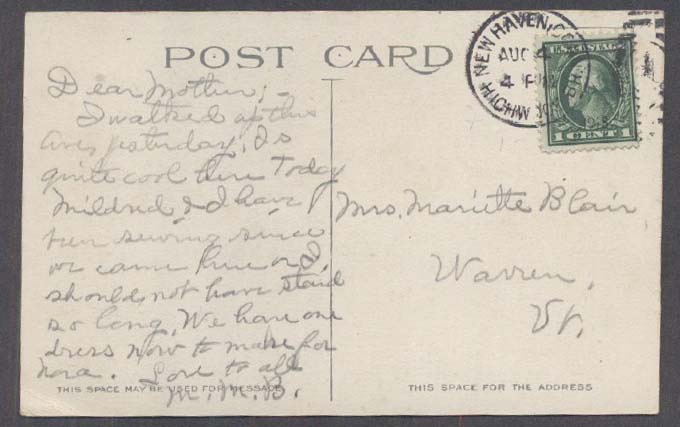 POST CARD
NEW HAVEN, CO
AUG 4
4 P
HIGHW
U.S. POSTAGE
1 CENT 1
Dear Mother;-
I walked up this
Ave, yesterday, Is
quite cool here Today
Mildred & I have
been sewing since
we came here or I
should not have staid
so long, We have one
dress now to make for
Nora. Love to all
M. M. B.
Mrs. Mariette Blair
Warren,
Vt.
THIS SPACE MAY BE USED FOR MESSAGE
THIS SPACE FOR THE ADDRESS